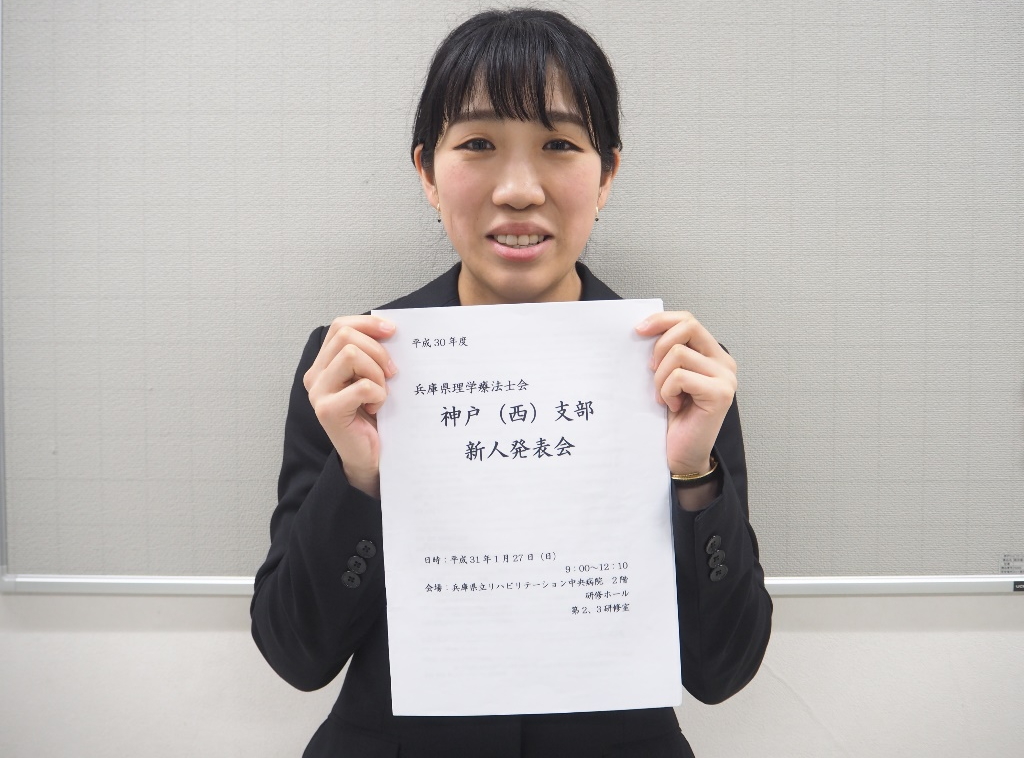 平成30年度
兵庫県理学療法士会
神戸（西）支部
新人発表会
日時：平成31年1月27日（日）
9：00～12：10
会場：兵庫県立リハビリテーション中央病院 2階
研修ホール
第2、3研修室